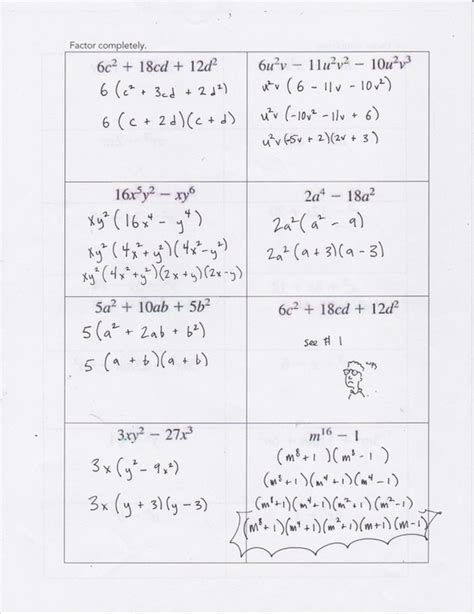 Factor completely.
6c² + 18cd + 12d²
6 (c² + 3cd + 2d²)
6 (c + 2d)(c + d)
6u²v − 11u²v² − 10u²v³
u²v (6 − 11v − 10v²)
u²v (−10v² − 11v + 6)
u²v (−5v + 2)(2v + 3)
16x⁵y² − xy⁶
xy² (16x⁴ − y⁴)
xy² (4x² + y²)(4x² − y²)
xy² (4x² + y²)(2x + y)(2x − y)
2a⁴ − 18a²
2a² (a² − 9)
2a² (a + 3)(a − 3)
5a² + 10ab + 5b²
5 (a² + 2ab + b²)
5 (a + b)(a + b)
6c² + 18cd + 12d²
see # 1
3xy² − 27x³
3x (y² − 9x²)
3x (y + 3)(y − 3)
m¹⁶ − 1
(m⁸ + 1)(m⁸ − 1)
(m⁸ + 1)(m⁴ + 1)(m⁴ − 1)
(m⁸ + 1)(m⁴ + 1)(m² + 1)(m² − 1)
(m⁸ + 1)(m⁴ + 1)(m² + 1)(m + 1)(m − 1)